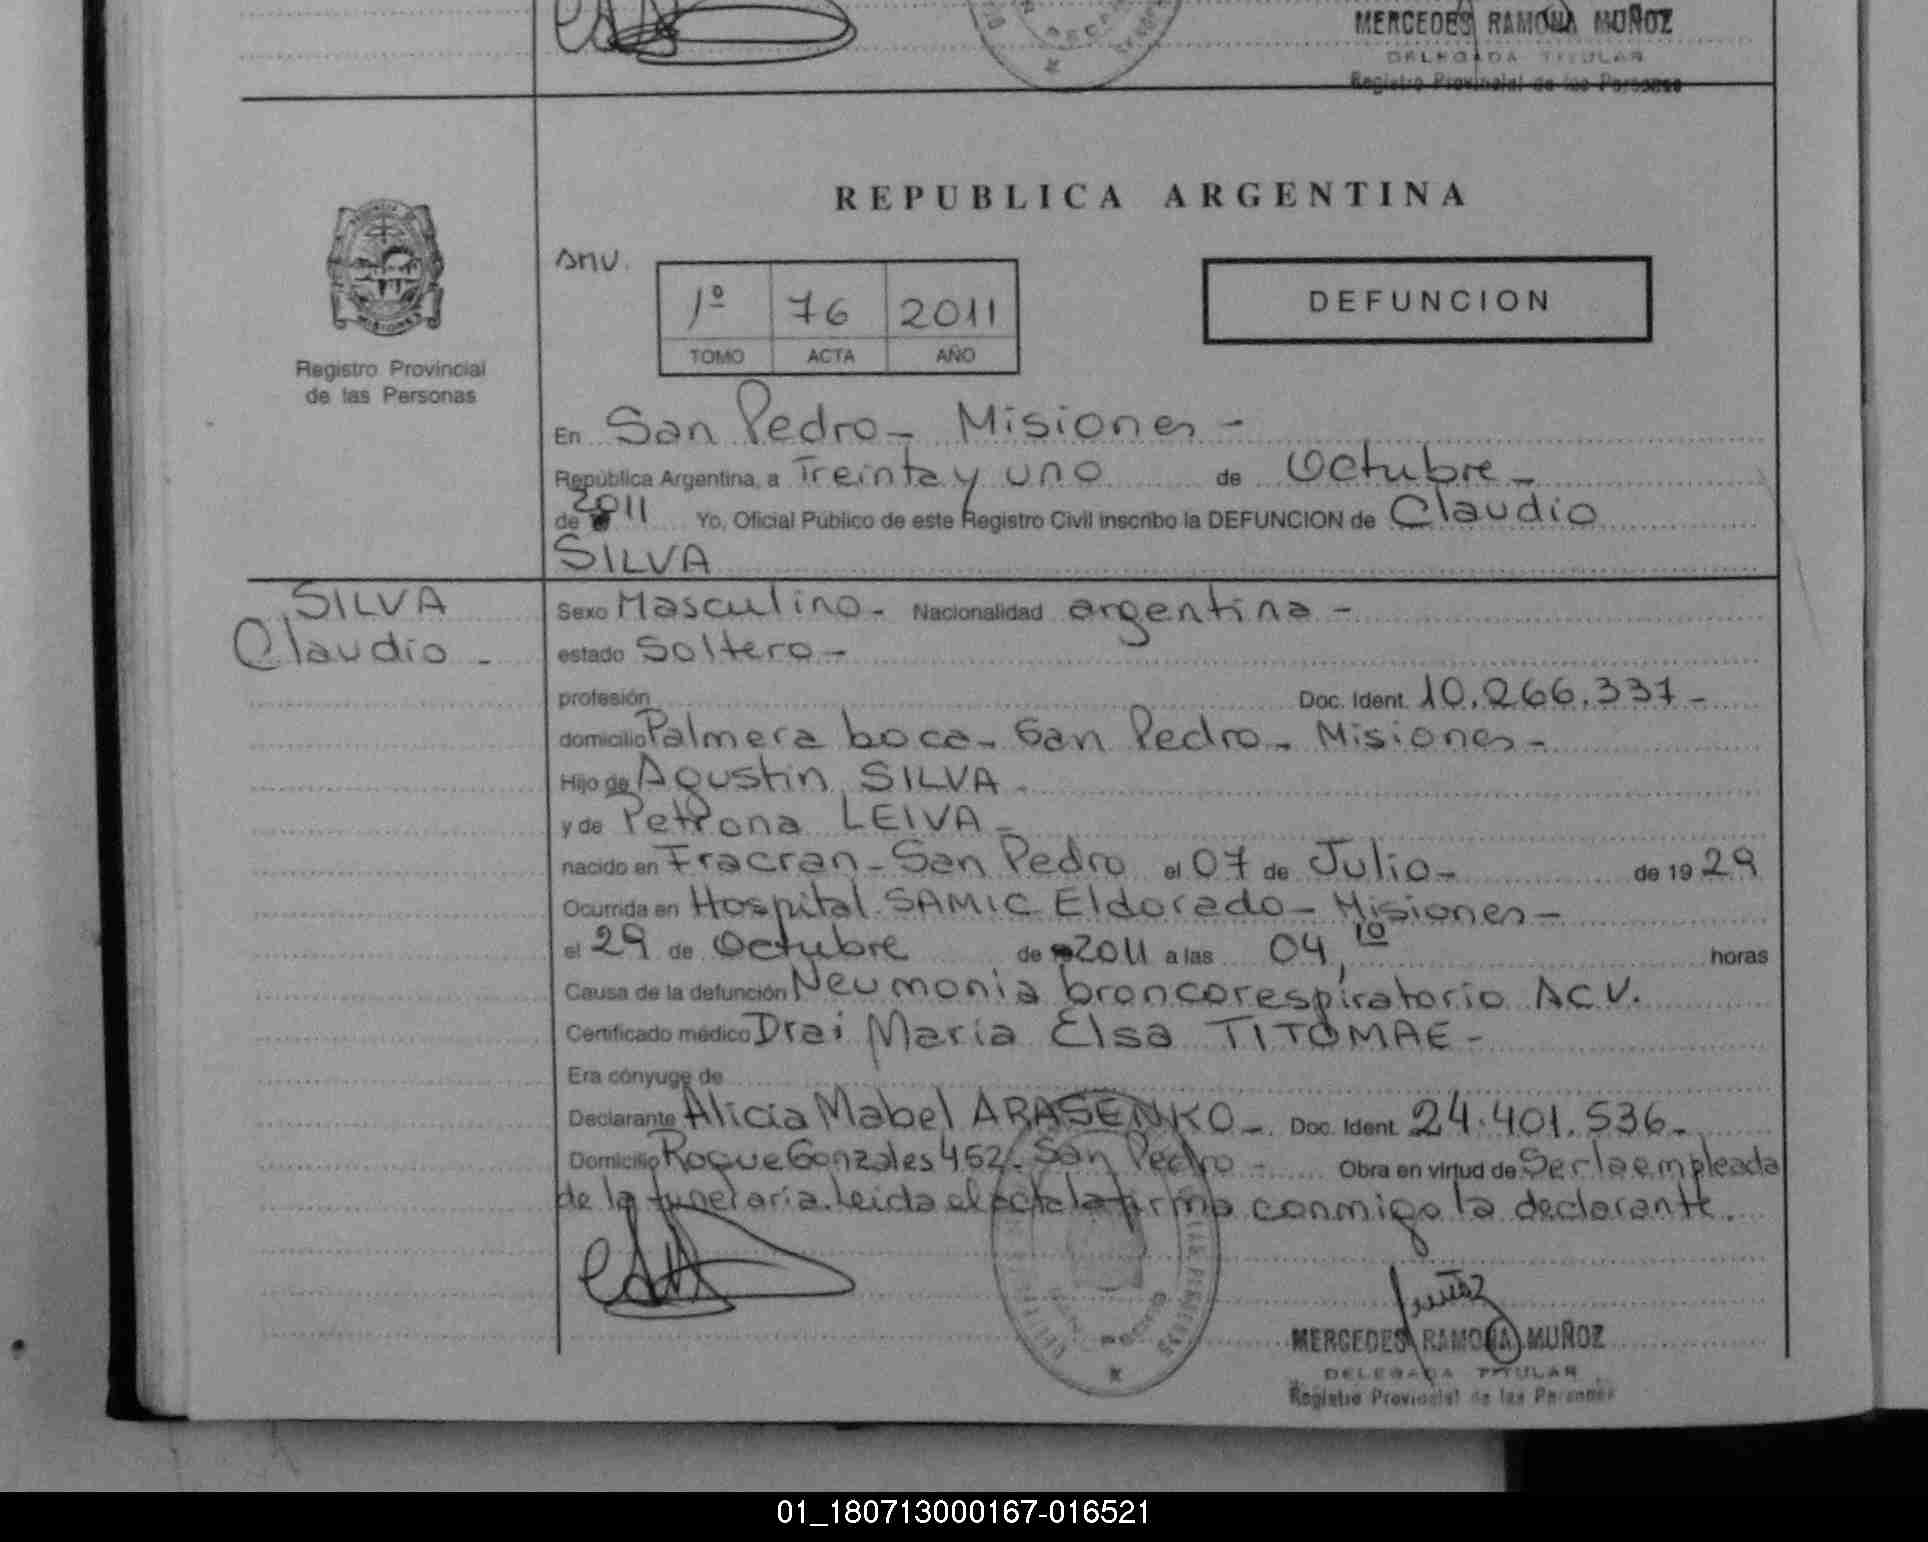 MERCEDES RAMONA MUÑOZ
DELEGADA TITULAR
Registro Provincial de las Personas
REPUBLICA ARGENTINA
SMU.
1º 76 2011
TOMO ACTA AÑO
DEFUNCION
MISIONES
Registro Provincial
de las Personas
En San Pedro - Misiones -
República Argentina, a Treinta y uno de Octubre -
de 2011 Yo, Oficial Público de este Registro Civil inscribo la DEFUNCION de Claudio
SILVA
SILVA
Claudio -
Sexo Masculino - Nacionalidad argentina -
estado Soltero -
profesión Doc. Ident. 10.266.337 -
domicilio Palmera boca - San Pedro - Misiones -
Hijo de Agustin SILVA -
y de Petrona LEIVA -
nacido en Fracran - San Pedro el 07 de Julio - de 19 29
Ocurrida en Hospital SAMIC Eldorado - Misiones -
el 29 de Octubre de 2011 a las 04,10 horas
Causa de la defunción Neumonia broncorespiratorio ACV.
Certificado médico Dra: Maria Elsa TITOMAE -
Era cónyuge de
Declarante Alicia Mabel ARASENKO - Doc. Ident. 24.401.536 -
Domicilio Roque Gonzales 462. San Pedro - Obra en virtud de Ser la empleada
de la funeraria. Leida el acta la firma conmigo la declarante.
SAN PEDRO
MERCEDES RAMONA MUÑOZ
DELEGADA TITULAR
Registro Provincial de las Personas
01_180713000167-016521